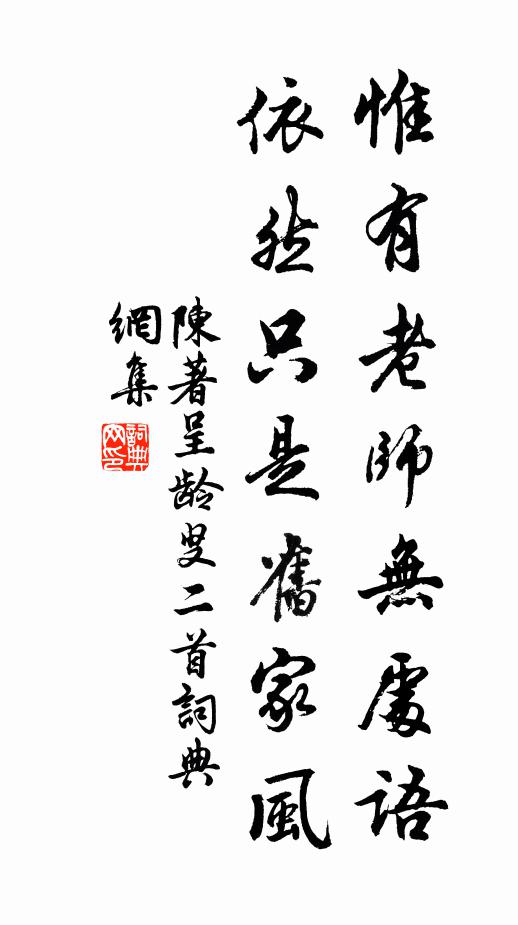 惟有老師無處語
依然只是舊家風
陳著呈龄叟二首詞典
網集
詞典網印